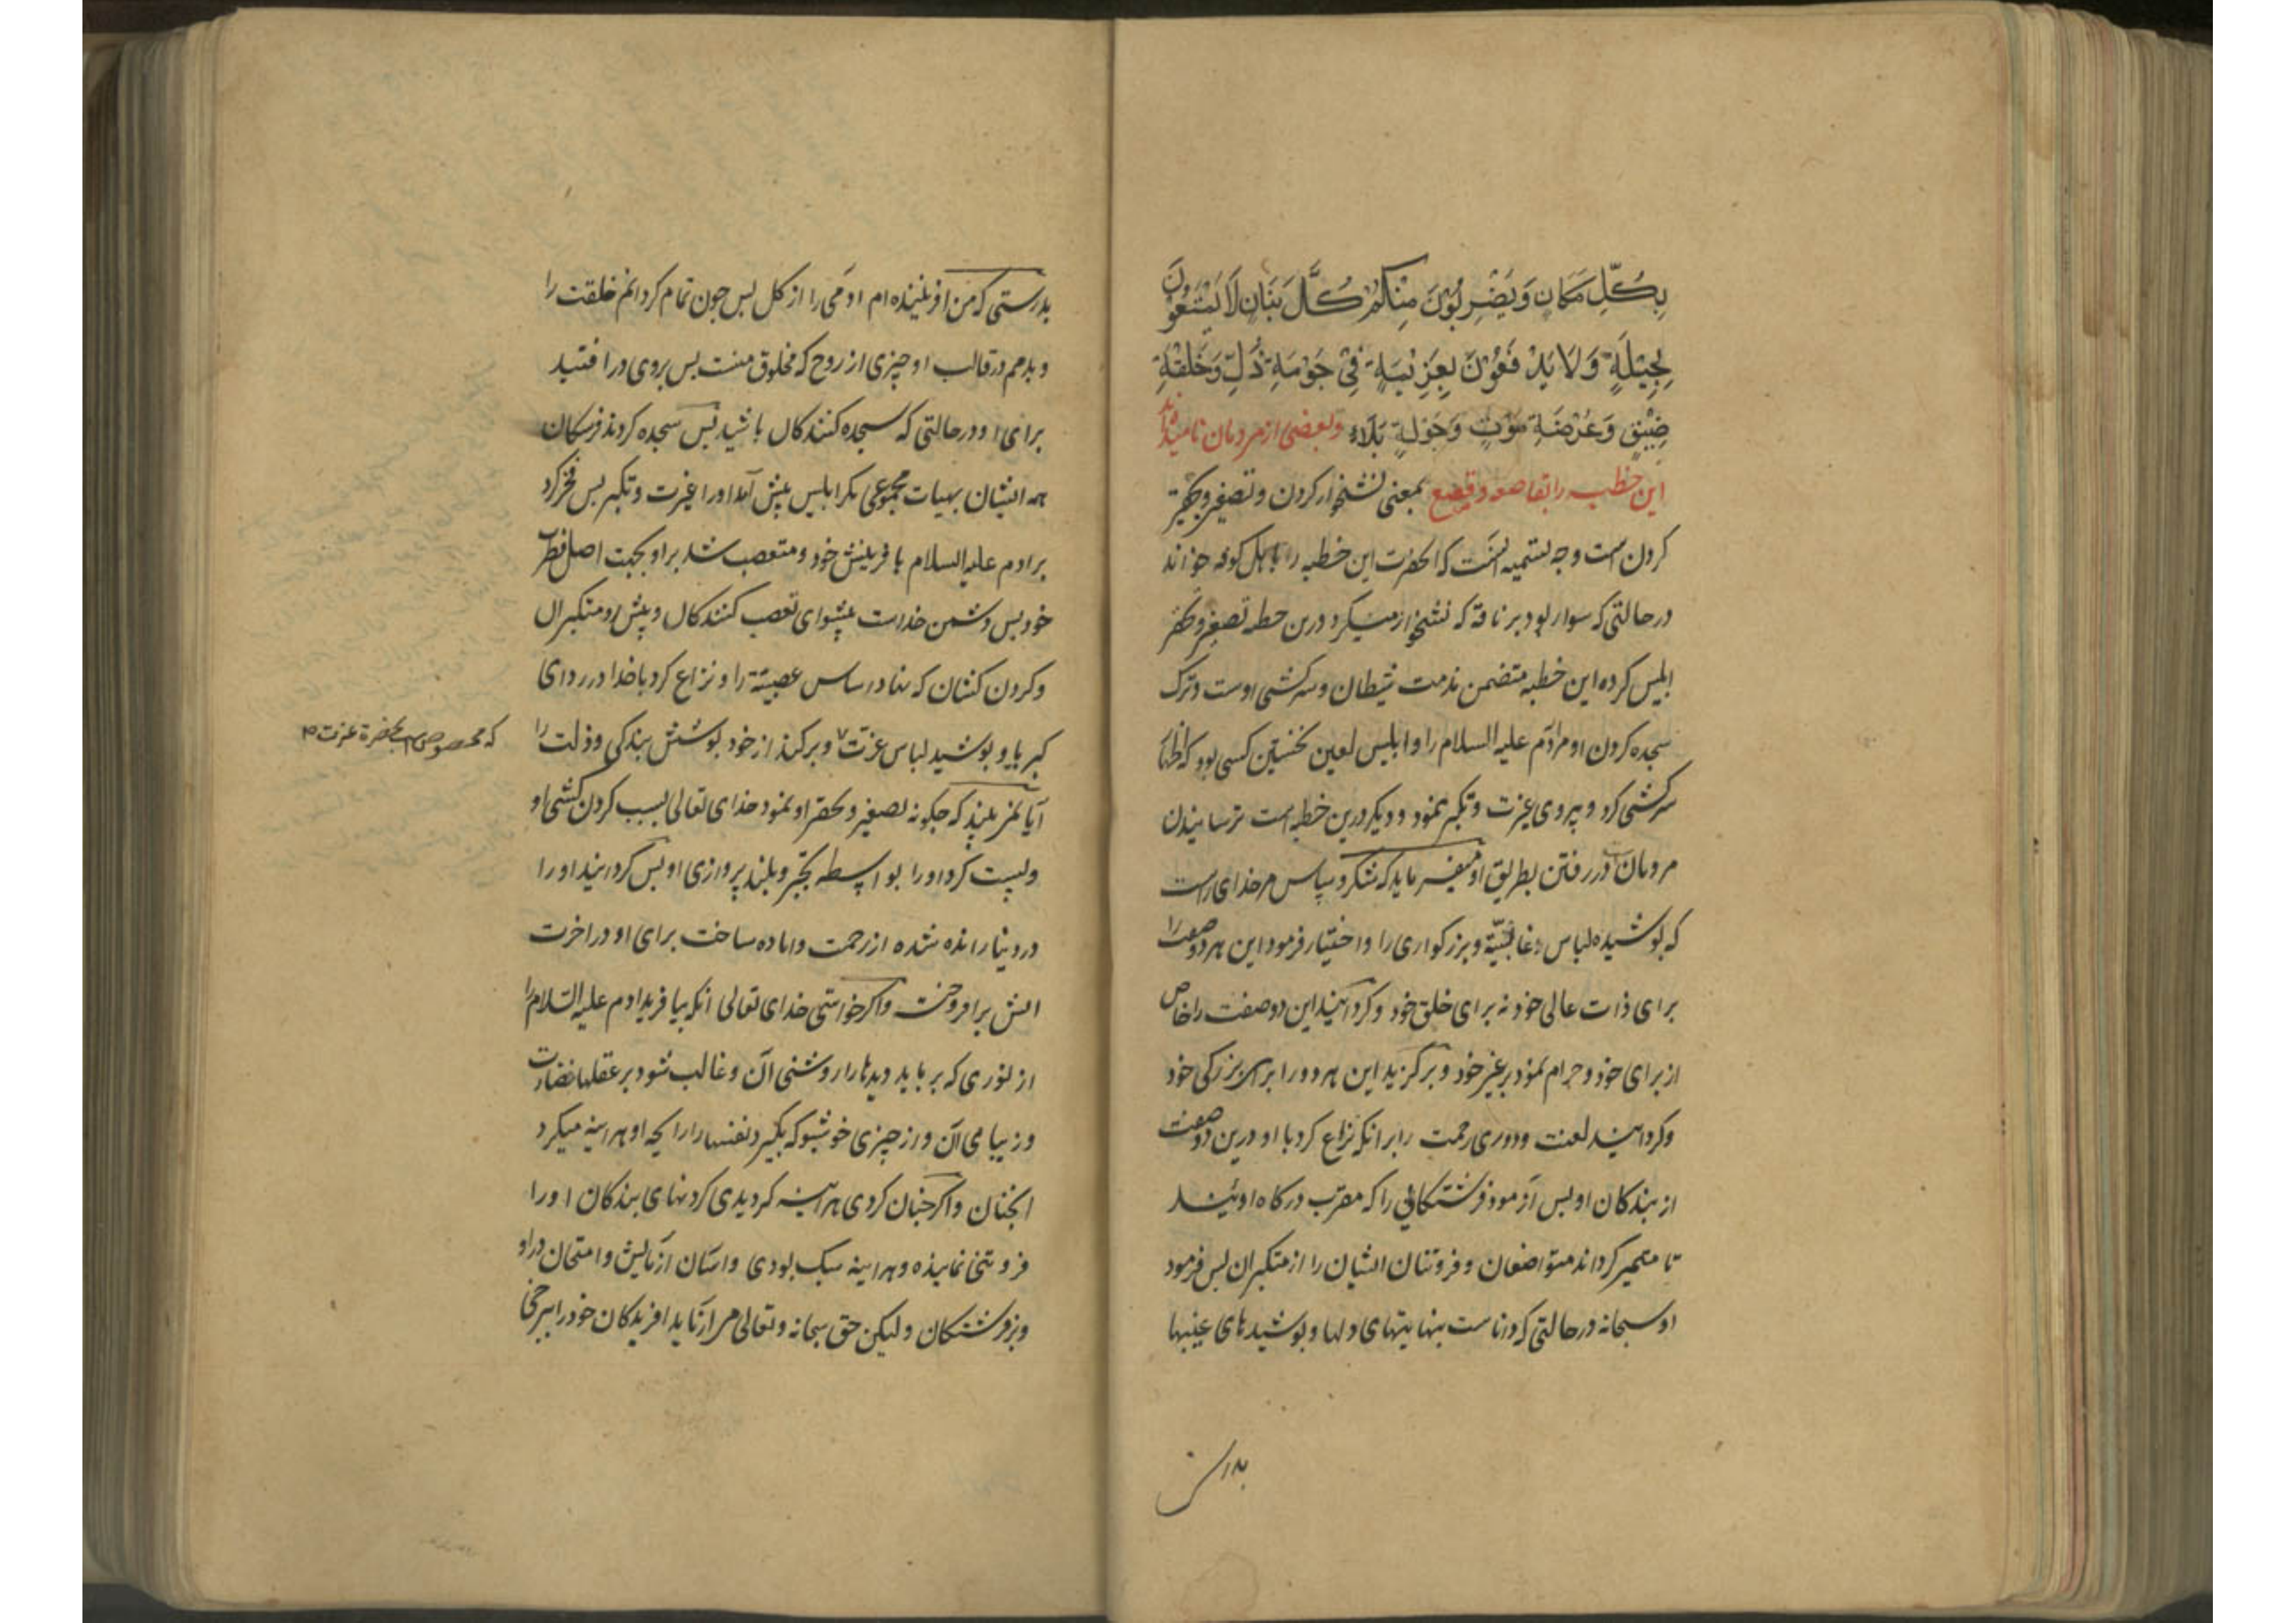 بِكُلِّ مَكَانٍ وَيَضْرِبُوْنَ مِنْكُمْ كُلَّ بَنَانٍ لَا يَمْتَنِعُوْنَ
بِحِيْلَةٍ وَلَا يَدْفَعُوْنَ بِعَزِيْمَةٍ فِيْ حَوْمَةِ ذُلٍّ وَحَلْقَةِ
ضِيْقٍ وَعَرْصَةِ مَوْتٍ وَجَوْلَةِ بَلَاءٍ وبعضی از مردمان نامیده‌اند
این خطبه را بقاصعه و قصع بمعنی نشخوار کردن و تصغیر و تحقیر
کردن است وجه تسمیه انست که انحضرت این خطبه را باهل کوفه خواند
درحالتی که سوار بود بر ناقه که نشخوار میکرد درین خطبه تصغیر و تحقیر
ابلیس کرده این خطبه متضمن مذمت شیطان و سرکشی اوست و ترک
سجده کردن او مر آدم علیه السلام را و ابلیس لعین نخستین کسی بود که اظهار
سرکشی کرد و پیروی غیرت و تکبر نمود و دیگر درین خطبه است ترسانیدن
مردمان در رفتن بطریق او میفرماید که شکر و سپاس مر خدای راست
که پوشیده لباس و بزرکواری را و اختیار فرمود این هر دو صفت را
برای ذات عالی خود نه برای خلق خود و کردانید این دو صفت را خاص
از برای خود و حرام نمود بر غیر خود و برکزید این هر دو را برای بزرکی خود
و کردانید لعنت و دوری رحمت را بر انکه نزاع کرد با او درین دو صفت
از بندکان او پس آزمود فرشتکانی را که مقرب درکاه اویند
تا متمیز کرداند متواضعان و فروتنان ایشان را از متکبران پس فرمود
او سبحانه درحالتی که داناست بنهانیهای دلها و پوشیدهای غیبها
بدرستی
بدرستی که من افریننده ام ادمی را از کل پس چون تمام کردانم خلقت را
و بدمم در قالب او چیزی از روح که مخلوق منست پس بروی در افتید
برای او درحالتی که سجده کنندکان باشید پس سجده کردند فرشتکان
همه ایشان بهیات مجموعی مکر ابلیس پیش آمد او را غیرت و تکبر پس فخر کرد
بر ادم علیه السلام بافرینش خود و متعصب شد بر او بجهت اصل فطرت
خود پس دشمن خداست پیشوای تعصب کنندکان و پیش رو متکبران
و کردن کشان که نهاد اساس عصبیة را و نزاع کرد با خدا در ردای
کبریا و پوشید لباس عزت و برکند از خود پوشش بندکی و ذلت را
که مخصوص است بحضرة عزت
آیا نمی‌بینید که چکونه تصغیر و تحقیر او نمود خدای تعالی بسبب کردن کشی او
و پست کرد او را بواسطه تجبر و بلند پروازی او پس کردانید او را
در دنیا رانده شده از رحمت و اماده ساخت برای او در اخرت
اتش برافروخت و اکر خواستی خدای تعالی انکه بیافرید ادم علیه السلام را
از نوری که برباید دیدها را روشنی آن و غالب شود بر عقلها نضارت
و زیبایی آن و از چیزی خوشبو که بگیرد نفسها را رایحه او هراینه میکرد
انچنان و اکر چنان کردی هراینه کردیدی کردنهای بندکان او را
فروتنی نماینده و هراینه سبک بودی و اسان ازمایش و امتحان در او
بر فرشتکان و لیکن حق سبحانه و تعالی می ازماید افریدکان خود را ببرخی